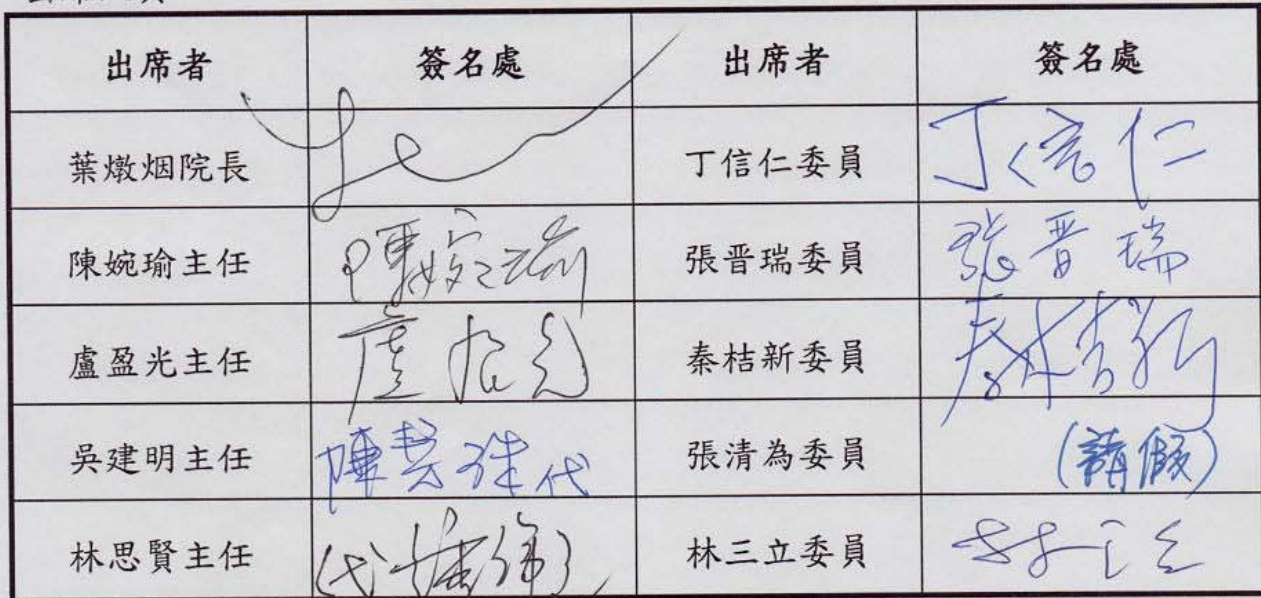 出席者 簽名處 出席者 簽名處
葉燉烟院長 丁信仁委員 丁信仁
陳婉瑜主任 陳婉瑜 張晉瑞委員 張晉瑞
盧盈光主任 盧盈光 秦桔新委員 秦桔新
吳建明主任 代 張清為委員 (請假)
林思賢主任 林三立委員